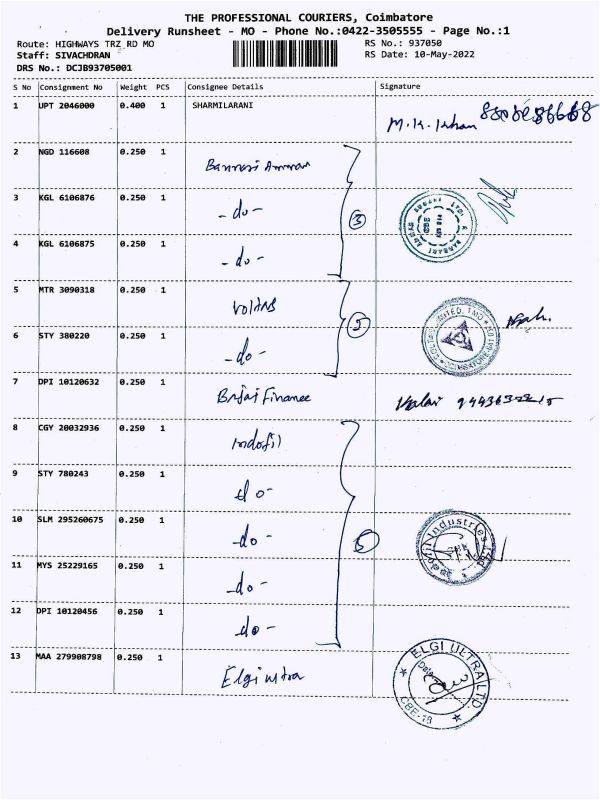 THE PROFESSIONAL COURIERS, Coimbatore
Delivery Runsheet - MO - Phone No.:0422-3505555 - Page No.:1
Route: HIGHWAYS TRZ RD MO RS No.: 937050
Staff: SIVACHDRAN RS Date: 10-May-2022
DRS No.: DCJB93705001
S No Consignment No Weight PCS Consignee Details Signature
1 UPT 2046000 0.400 1 SHARMILARANI
2 NGD 116608 0.250 1 Bannari Amman
3 KGL 6106876 0.250 1 -do-
4 KGL 6106875 0.250 1 -do-
3
5 MTR 3090318 0.250 1 Voltas
6 STY 380220 0.250 1 -do-
7 DPI 10120632 0.250 1 Bajaj Finance
8 CGY 20032936 0.250 1 Indofil
9 STY 780243 0.250 1 do-
10 SLM 295260675 0.250 1 -do-
11 MYS 25229165 0.250 1 -do-
12 DPI 10120456 0.250 1 -do-
5
13 MAA 279908798 0.250 1 Elgi ultra
ELGI ULTRA LTD
CBE-18